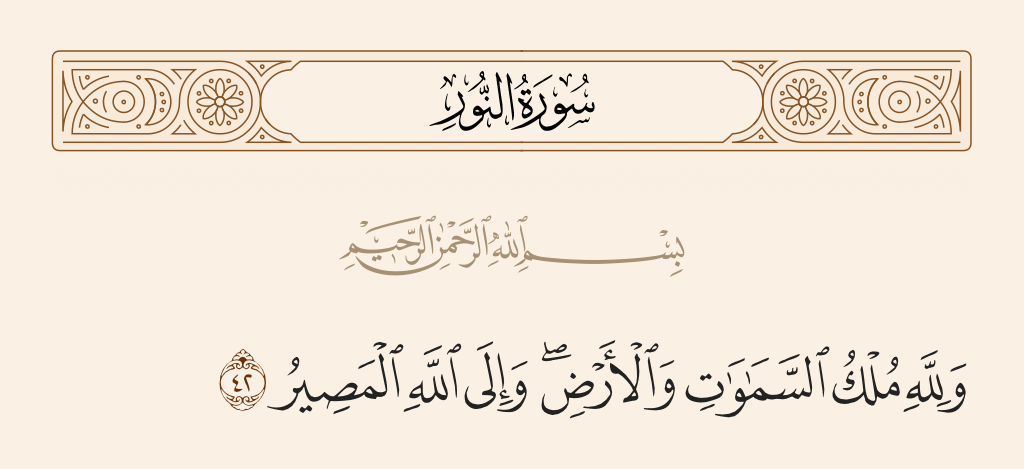 سُورَةُ النُّورِ
بِسْمِ ٱللَّهِ ٱلرَّحْمَٰنِ ٱلرَّحِيمِ
وَلِلَّهِ مُلْكُ ٱلسَّمَٰوَٰتِ وَٱلْأَرْضِ ۖ وَإِلَى ٱللَّهِ ٱلْمَصِيرُ ٤٢